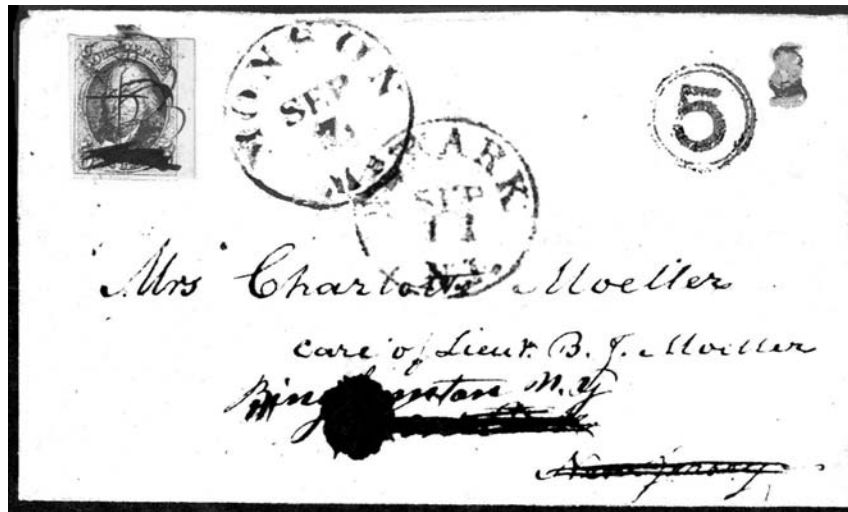 POST OFFICE
SEP
5
ARK
SEP
11
N.J.
Mrs Charlotte Moeller
care of Lieut. B. J. Moeller
Binghamston N. Y
New Jersey